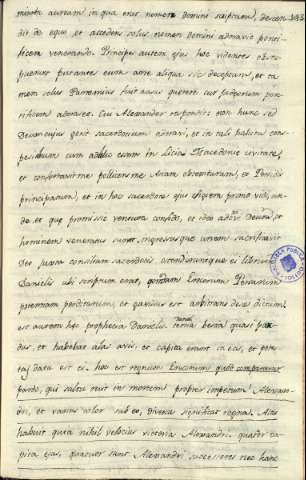 minota auream, in qua erat nomen Domini scriptum, descen 393
dit de equo, et accedens solus nomen Domini adoravit ponti
ficem venerando. Principes autem ejus hoc videntes obstu
puerunt putantes eum arte aliqua sic deceptum, et ta
men solus Parmenius fuit ausus querere cur Judeorum pon
tificem adorasset. Cui Alexander respondit non hunc sed
Deum cujus gerit sacerdotium adoravi, et in tali habitu con
spexi hunc cum adhuc essem in Licia Macedonie civitate,
et confortavit me pollicens me Asiam obtenturum, et Persidis
principatum, et in hoc sacerdote ejus effigiem primo vidi, un
de et que promissit ventura confido, et ideo adoro Deum, et
hominem veneratus sum, ingressusque urbem sacrificavit
Deo juxta consilium sacerdotis, ostenditurque ei liber
Danielis ubi scriptum erat, quemdam Grecorum Persarum
potentiam perditurum, et gavisus est arbitrans de se dictum
est autem hec prophecia Danielis tercia bestia quasi par
dus, et habebat alas avis, et capita erant in eis, et potes
tas data est ei. hoc est regnum Grecorum quod comparatur
pardo, qui saltu ruit in mortem propter impetum Alexan-
dri, et varius color sub eo, diversa significat regna. Alas
habuit quia nihil velocius victoria Alexandri. quatuor ca
pita ejus, quatuor sunt Alexandri successores nec hanc